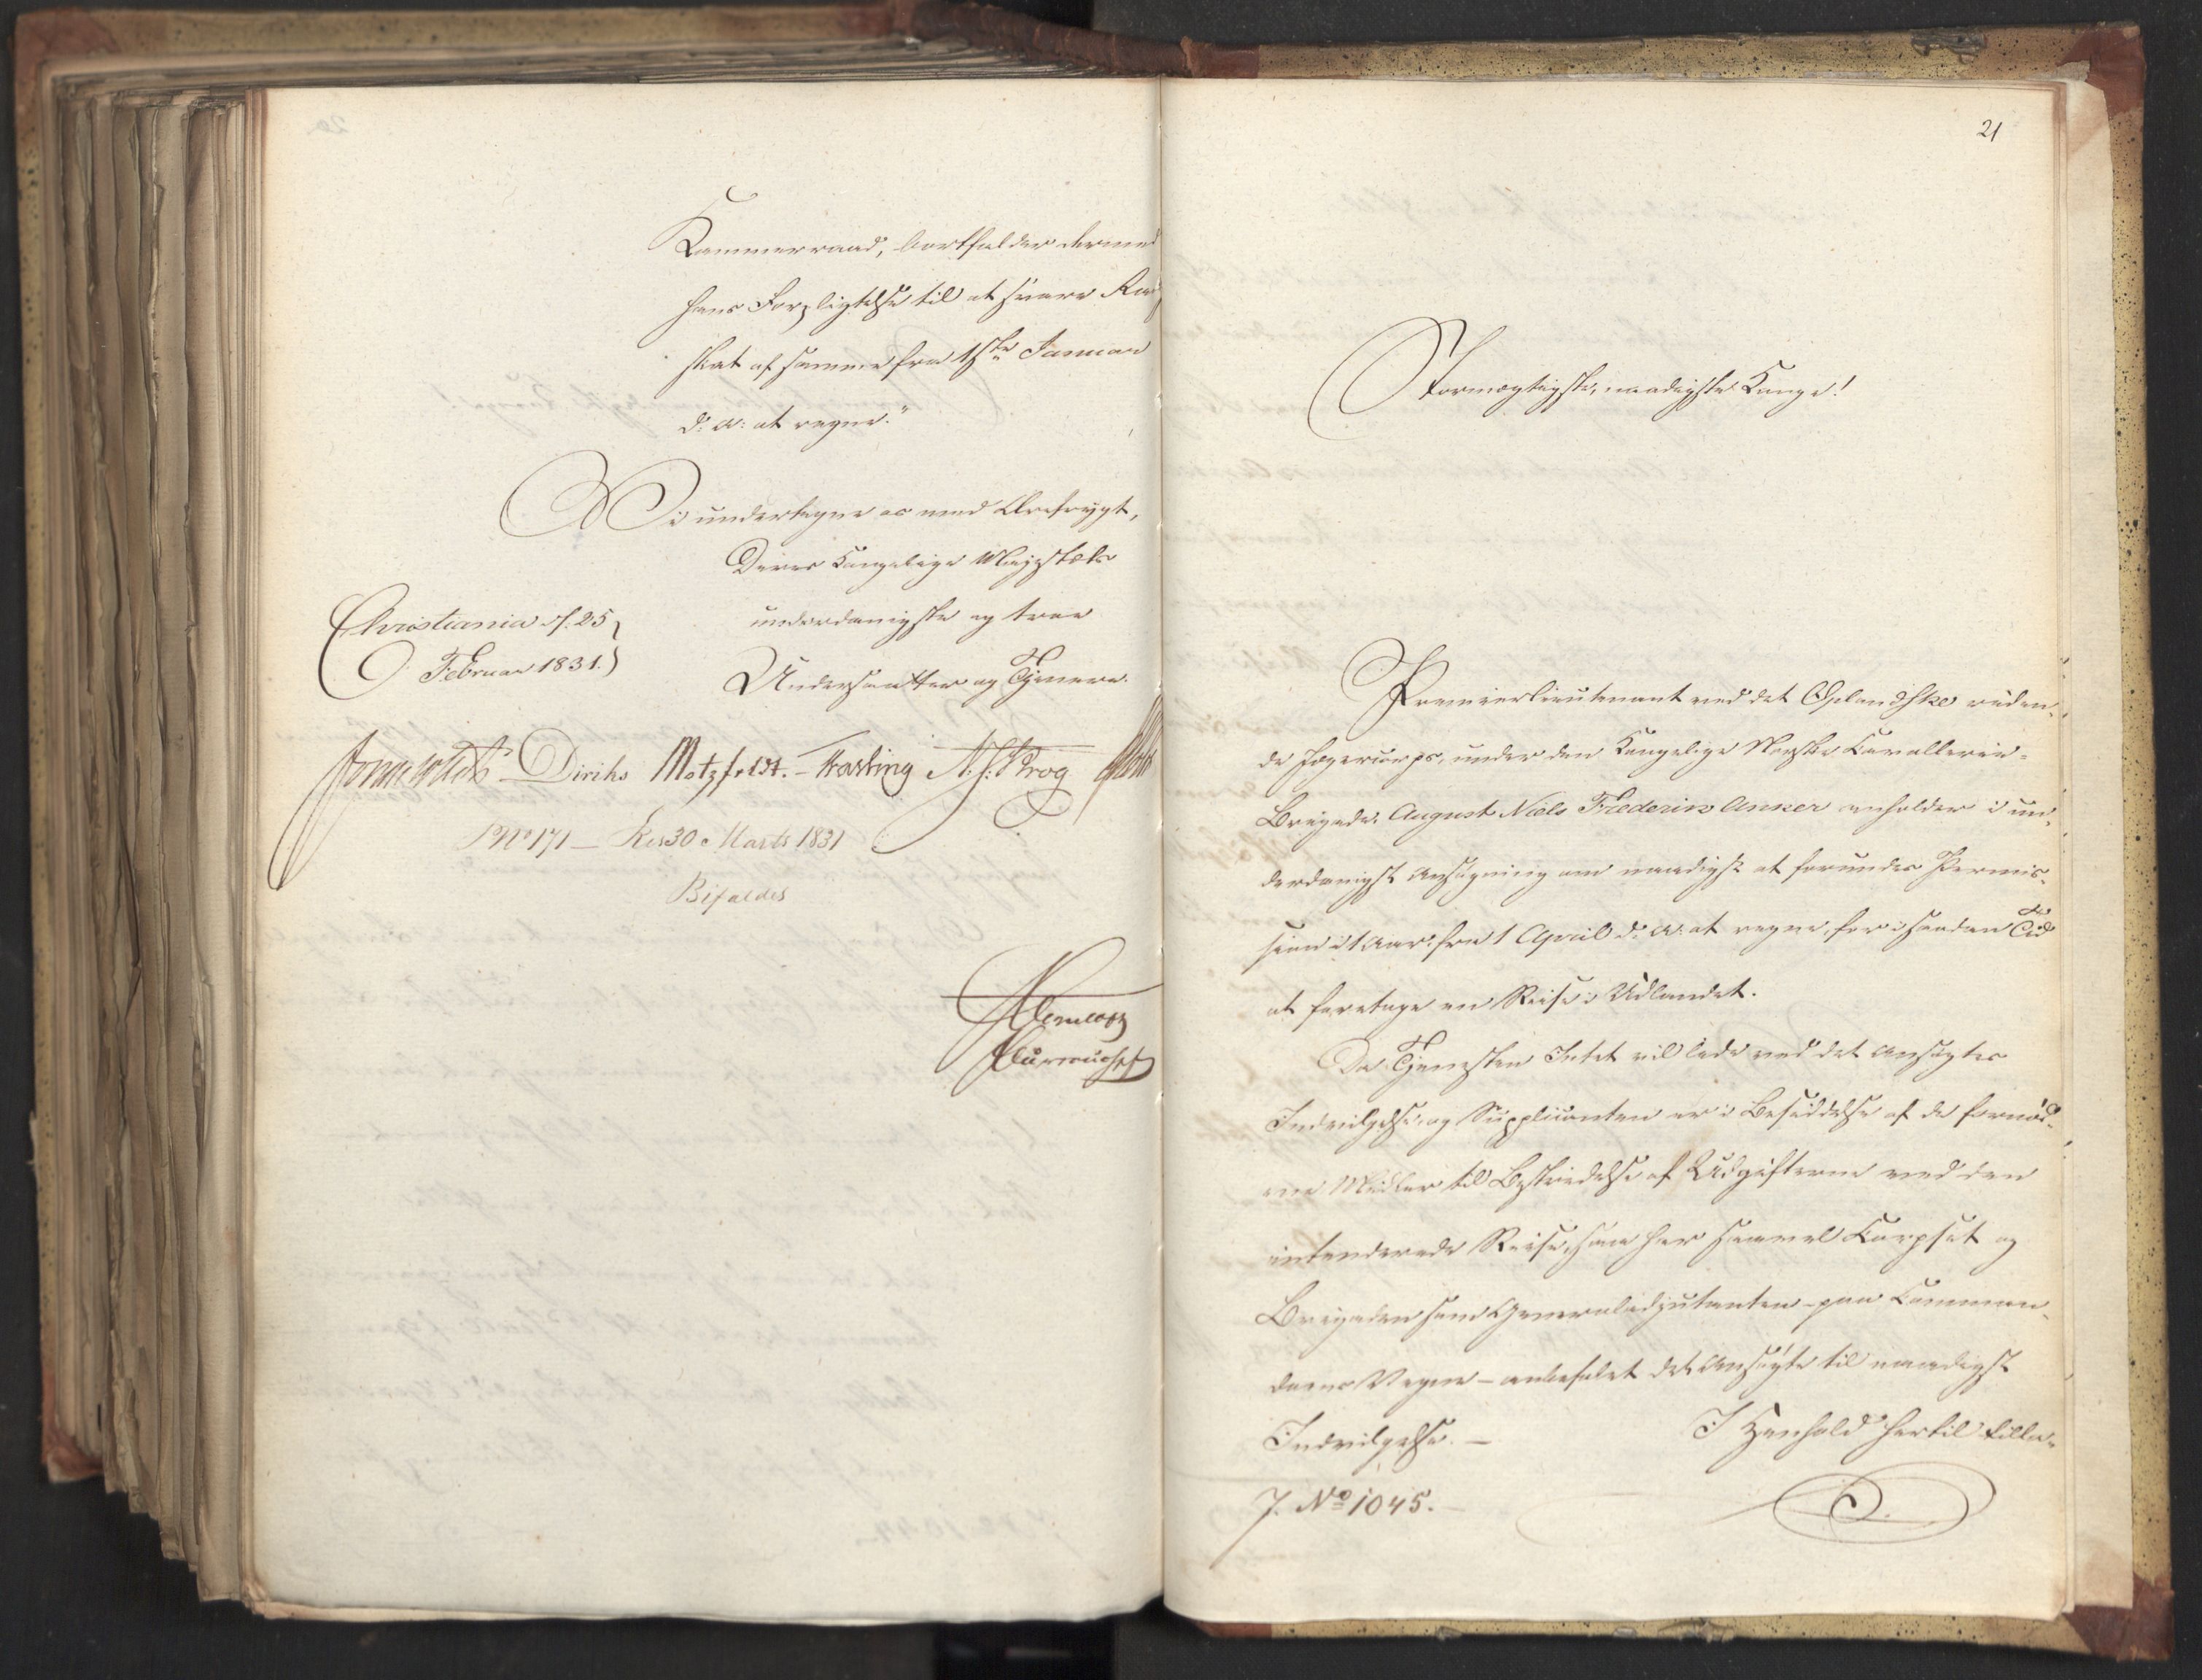 Kammerraad, bortfalder dermed
hans Forpligtelse til at svare Rang
skat af samme fra 1ste Januar
d: A: at regne."
Vi undertegne os med Ærefrygt,
Deres Kongelige Majestæts
underdanigste og troe
Undersaatter og Tjenere.
Christiania d. 25
Februar 1831.
Diriks Motzfeldt. Fasting
No 171 — Res 30 Marts 1831
Bifaldes
21
Stormægtigste, naadigste Konge!
Premierlieutenant ved det Oplandske riden-
de Jægercorps, under den Kongelige Norske Cavallerie-
Brigade August Niels Frederik Anker anholder i un-
derdanigst Ansøgning om naadigst at forundes Permis-
sion i 1 Aar fra 1 April d: A: at regne, for i saadan Tid
at foretage en Reise i Udlandet.
Da Tjenesten Intet vil lide ved det Ansøgtes
Indvilgelse, og Supplicanten er i Besiddelse af de fornød-
ne Midler til Bestridelse af Udgifterne ved den
intenderede Reise, saa har saavel Corpset og
Brigaden som Generaladjutanten - paa Comman-
doens Vegne - anbefalet det Ansøgte til naadigst
Indvilgelse. —
I Henhold hertil tilla-
J. No 1045.